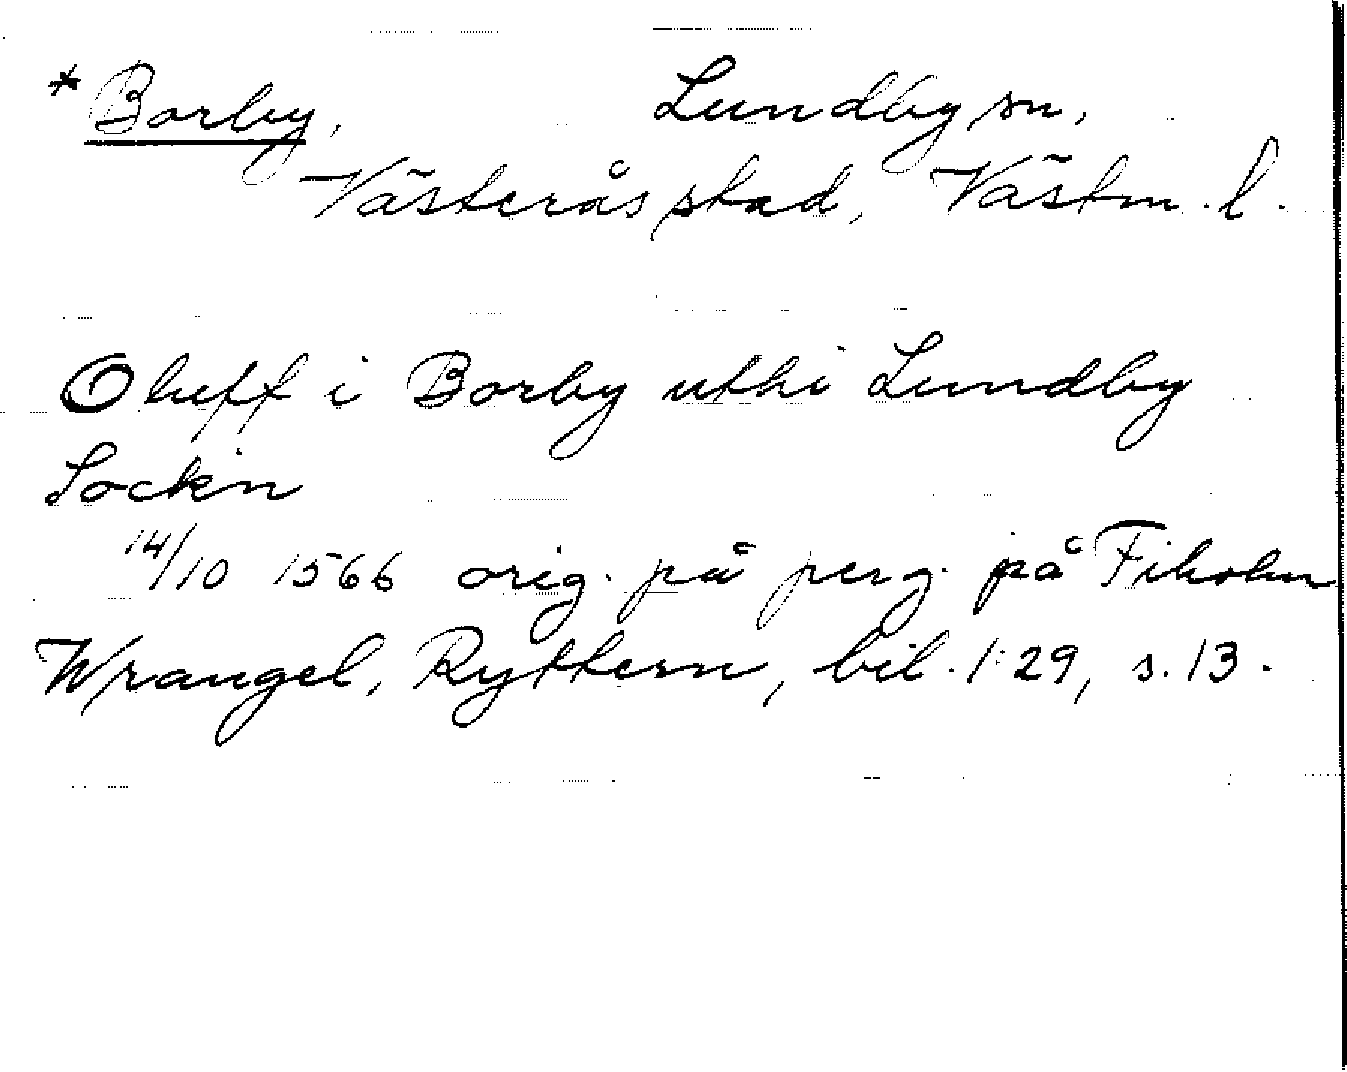 * Borby, Lundby sn,
Västerås stad, Västm. l.
Oluff i Borby uthi Lundby
Sockn
14/10 1566 orig. på perg. på Fiholm
Wrangel, Ryttern, bil. 1:29, s. 13.